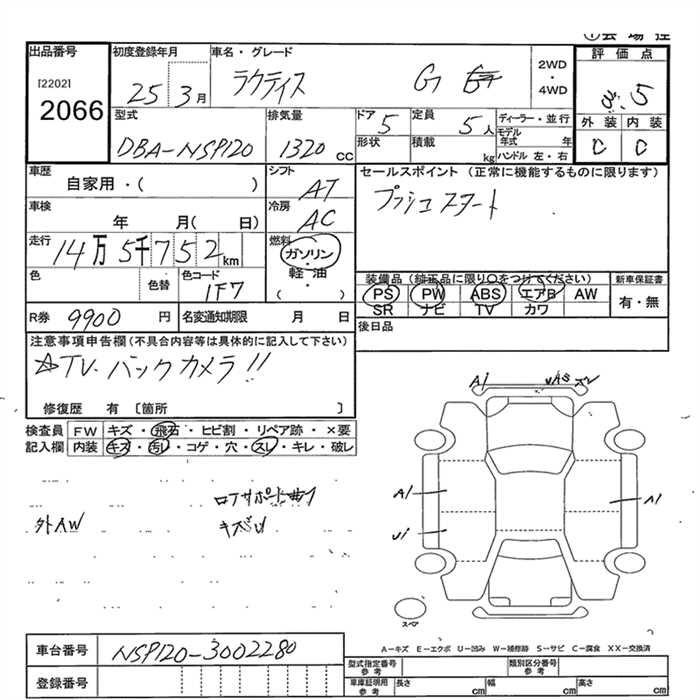 出品番号
[2202]
2066
初度登録年月
25 3月
車名・グレード
ラクティス G
2WD
・
4WD
評価点
3.5
外装 内装
C C
型式
DBA-NSP120
排気量
1320 cc
ドア 5
形状
定員 5人
積載 kg
ディーラー・並行
モデル年式 年
ハンドル 左・右
車歴
自家用・( )
シフト
AT
セールスポイント(正常に機能するものに限ります)
プッシュスタート
車検
年 月( 日)
冷房
AC
走行
14万5千752km
燃料
ガソリン
・
軽・油
・
( )
色
色替
色コード
1F7
装備品(純正品に限り〇をつけてください)
PS PW ABS エアB AW
SR ナビ TV カワ
新車保証書
有・無
R券 9900 円
名変通知期限 月 日
後日品
注意事項申告欄(不具合内容等は具体的に記入して下さい)
☆TV.バックカメラ!!
修復歴 有〔箇所 〕
検査員
記入欄
FW キズ・飛石・ヒビ割・リペア跡・×要
内装 キズ・汚レ・コゲ・穴・スレ・キレ・破レ
ロアサポート曲り
外AW キズ凹
A1
A1
U1
A1
スペア
A-キズ E-エクボ U-凹み W-補修跡 S-サビ C-腐食 XX-交換済
車台番号 NSP120-3002280
登録番号
型式指定番号
参考
類別区分番号
参考
車庫証明用
参考
長さ cm
幅 cm
高さ cm